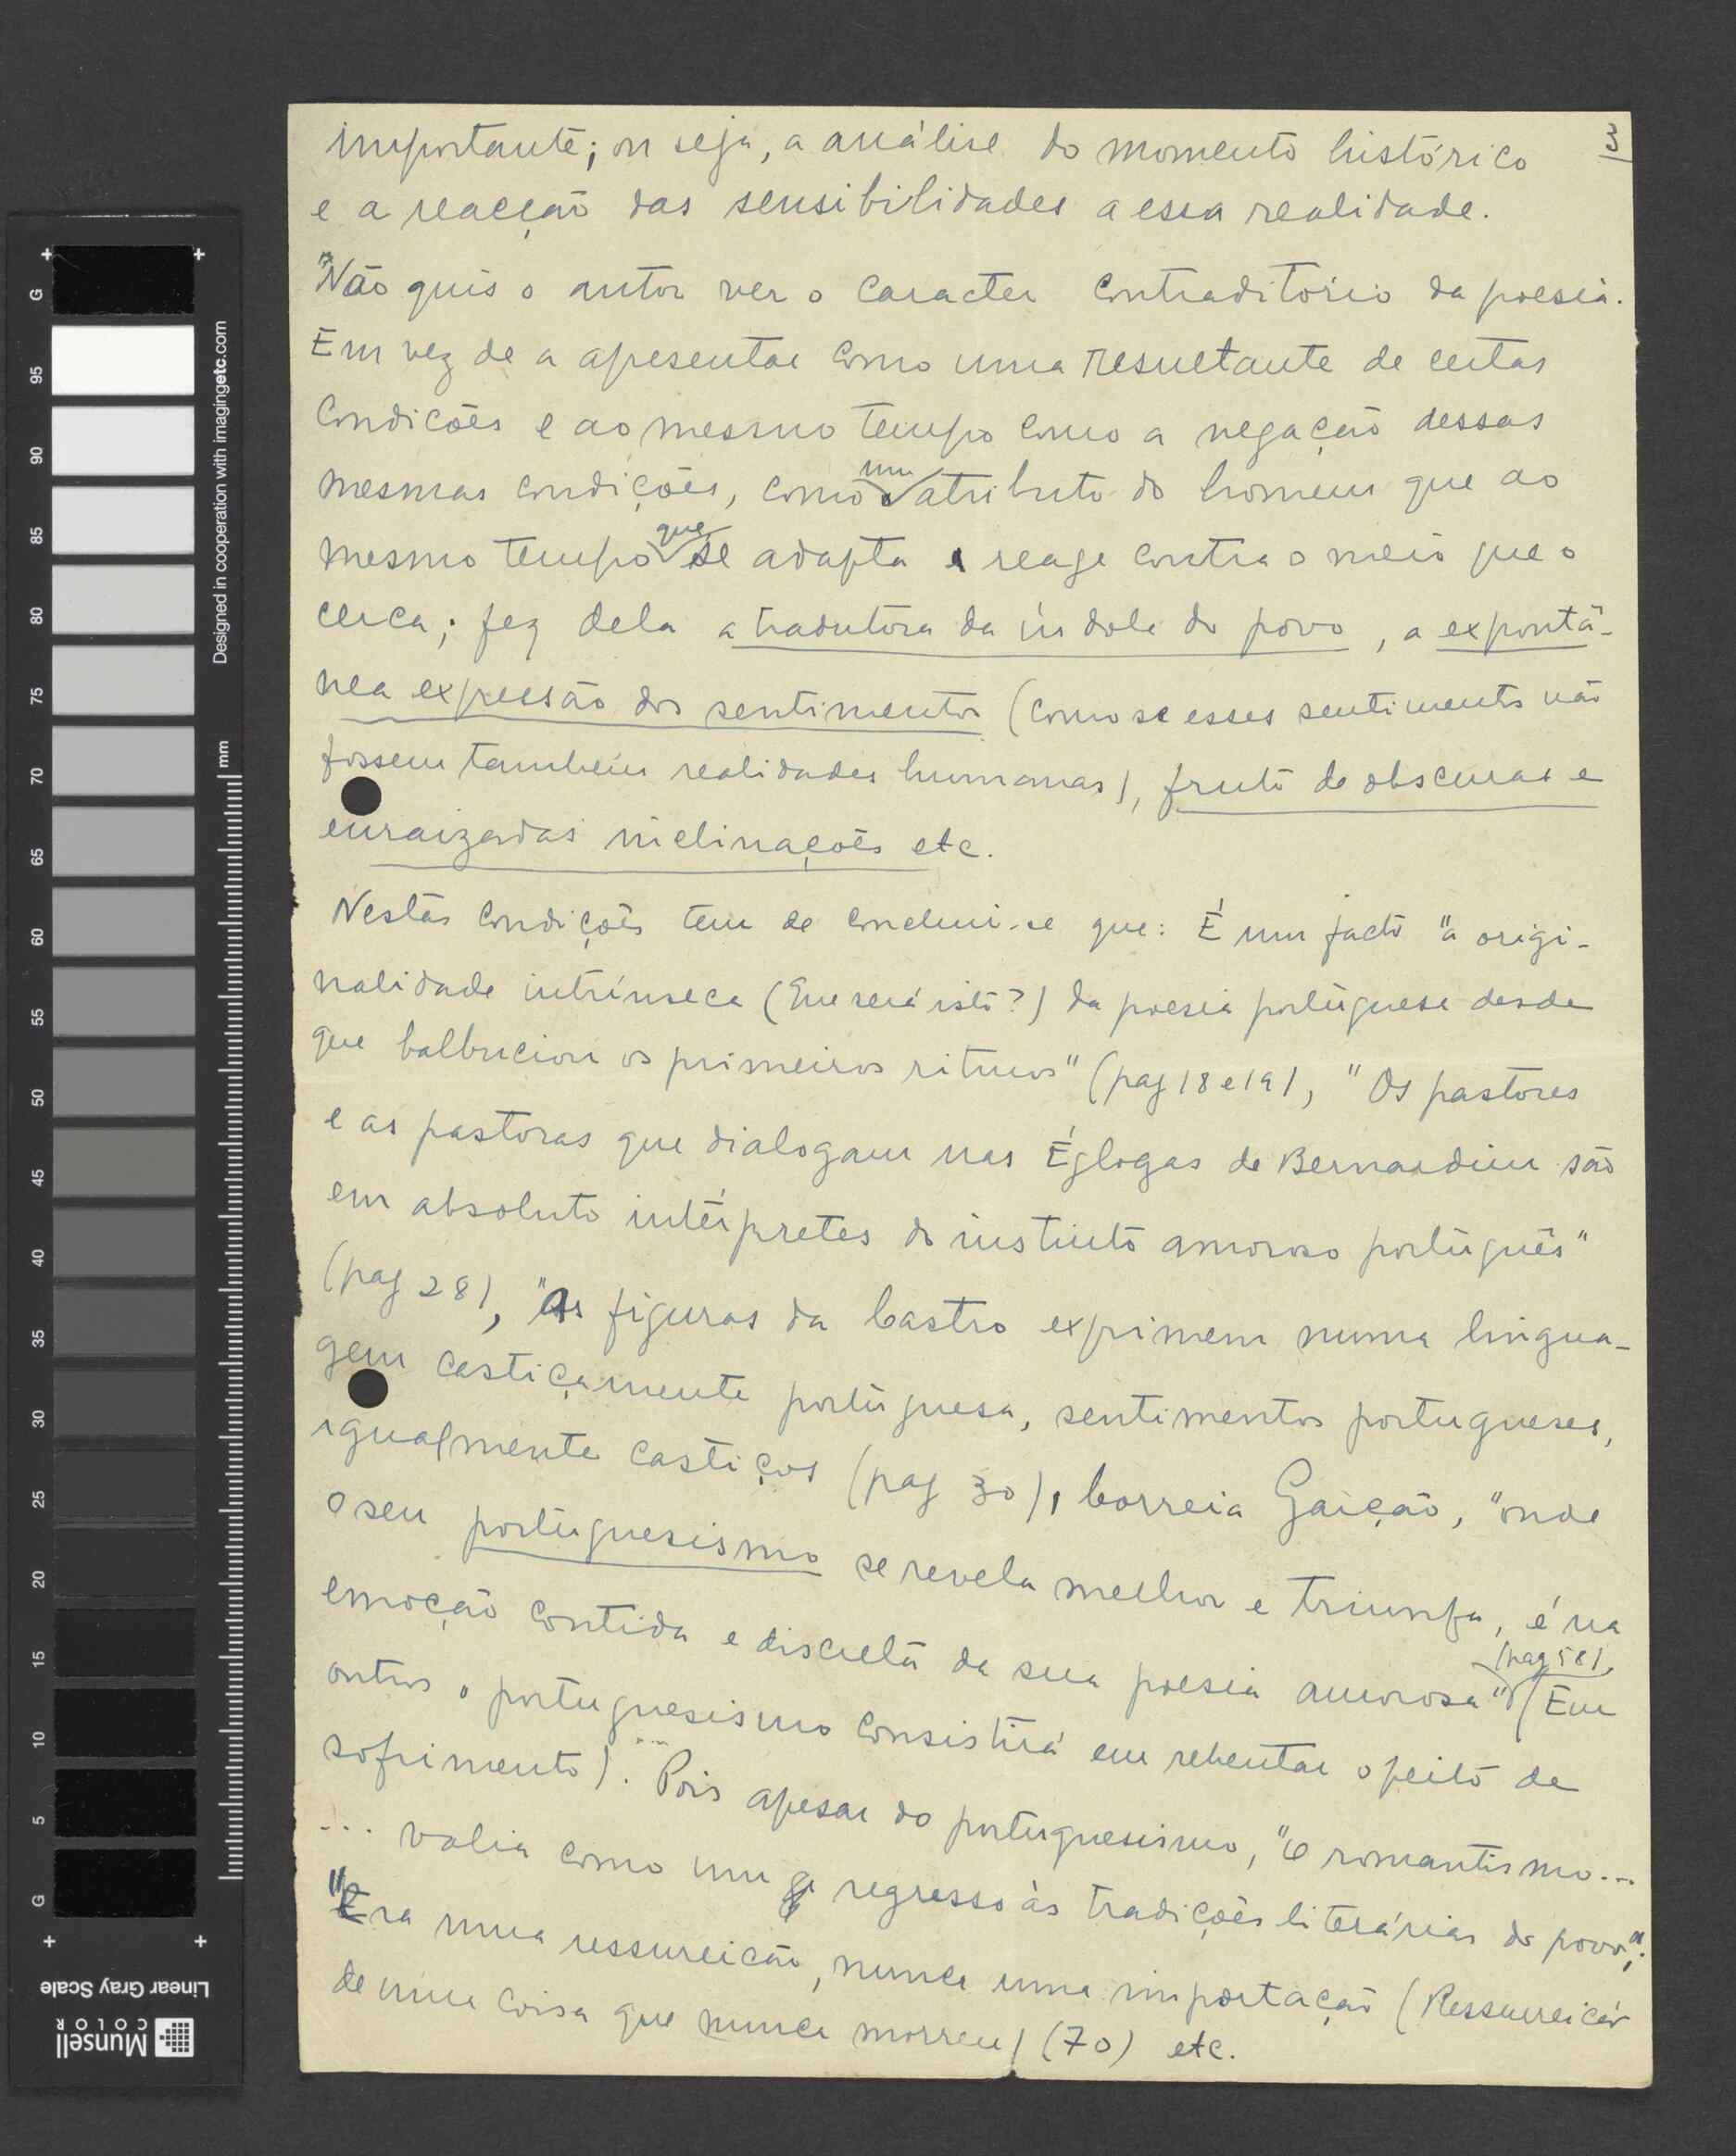 3
importante; ou seja, a análise do momento histórico
e a reacção das sensibilidades a essa realidade.
"Não quis o autor ver o caracter contraditório da poesia.
Em vez de a apesentar como uma resultante de certas
condições e ao mesmo tempo como a negação dessas
mesmas condições, como um atributo do homem que ao
mesmo tempo que se adapta reage contra o meio que o
cerca; fez dela a tradutora da índole do povo, a expontâ-
nea expressão dos sentimentos (como se esses sentimentos não
fossem também realidades humanas), fruto de obscuras e
enraizadas inclinações etc.
Nestas condições tem de concluir-se que: É um facto "a origi-
nalidade intrínseca (Que será isto?) da poesia portuguesa desde
que balbuciou os primeiros ritmos" (pag 18 e 19), "Os pastores
e as pastoras que dialogam nas Églogas de Bernardim são
em absoluto intérpretes do instinto amoroso português"
(pag 28), "As figuras da Castro exprimem numa lingua-
gem castiçamente portuguesa, sentimentos portugueses,
igualmente castiços (pag 30), Correia Garção, "onde
o seu portuguesismo se revela melhor e triunfa, é na
emoção contida e discreta da sua poesia amorosa" (pag 58). (Em
outros o portuguesismo consistirá em rebentar o peito de
sofrimento)... Pois apesar do portuguesismo, "o romantismo...
... valia como um regresso às tradições literárias do povo";
"Era uma ressureição, nunca uma importação (Ressureição
de uma coisa que nunca morreu) (70) etc.
G
95
90
85
80
75
70
65
60
55
50
45
40
35
30
25
20
15
10
5
G
Designed in cooperation with imagingetc.com
mm
Linear Gray Scale
Munsell
COLOR